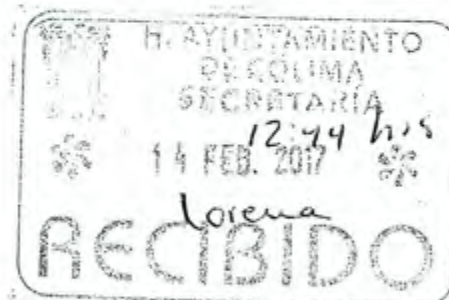 H. AYUNTAMIENTO
DE COLIMA
SECRETARÍA
12:44 hrs
14 FEB. 2017
Lorena
RECIBIDO